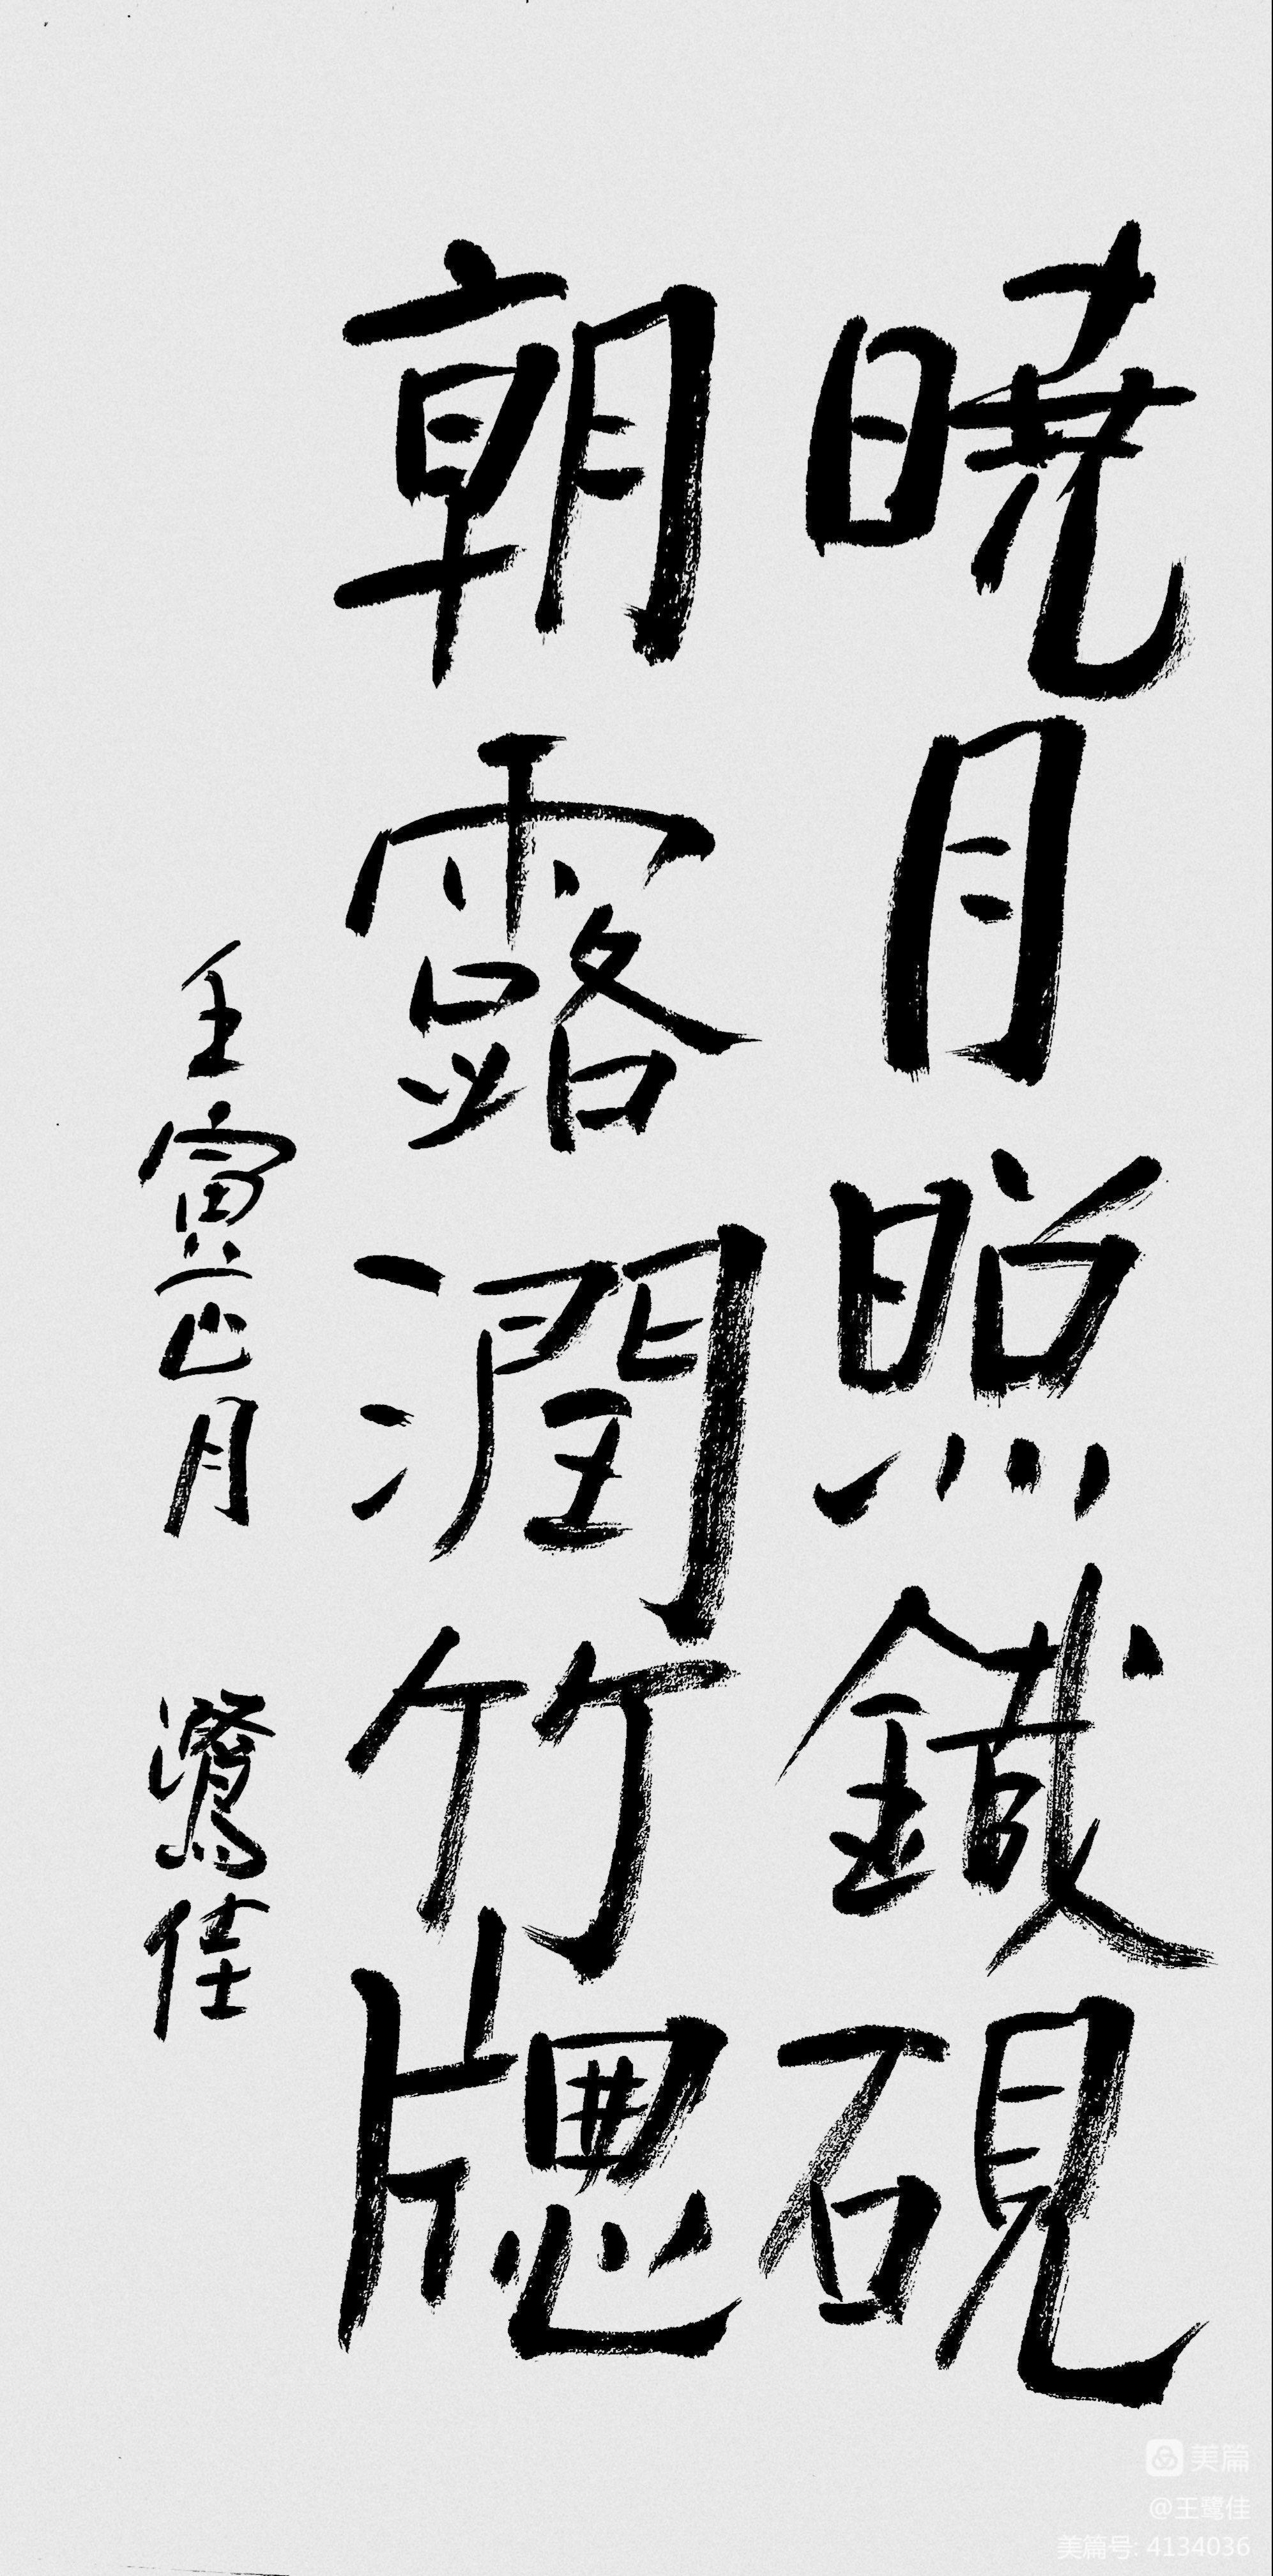 曉月照鐵硯
朝露潤竹牕
壬寅正月 鷺佳
美篇
@王鹭佳
美篇号: 4134036